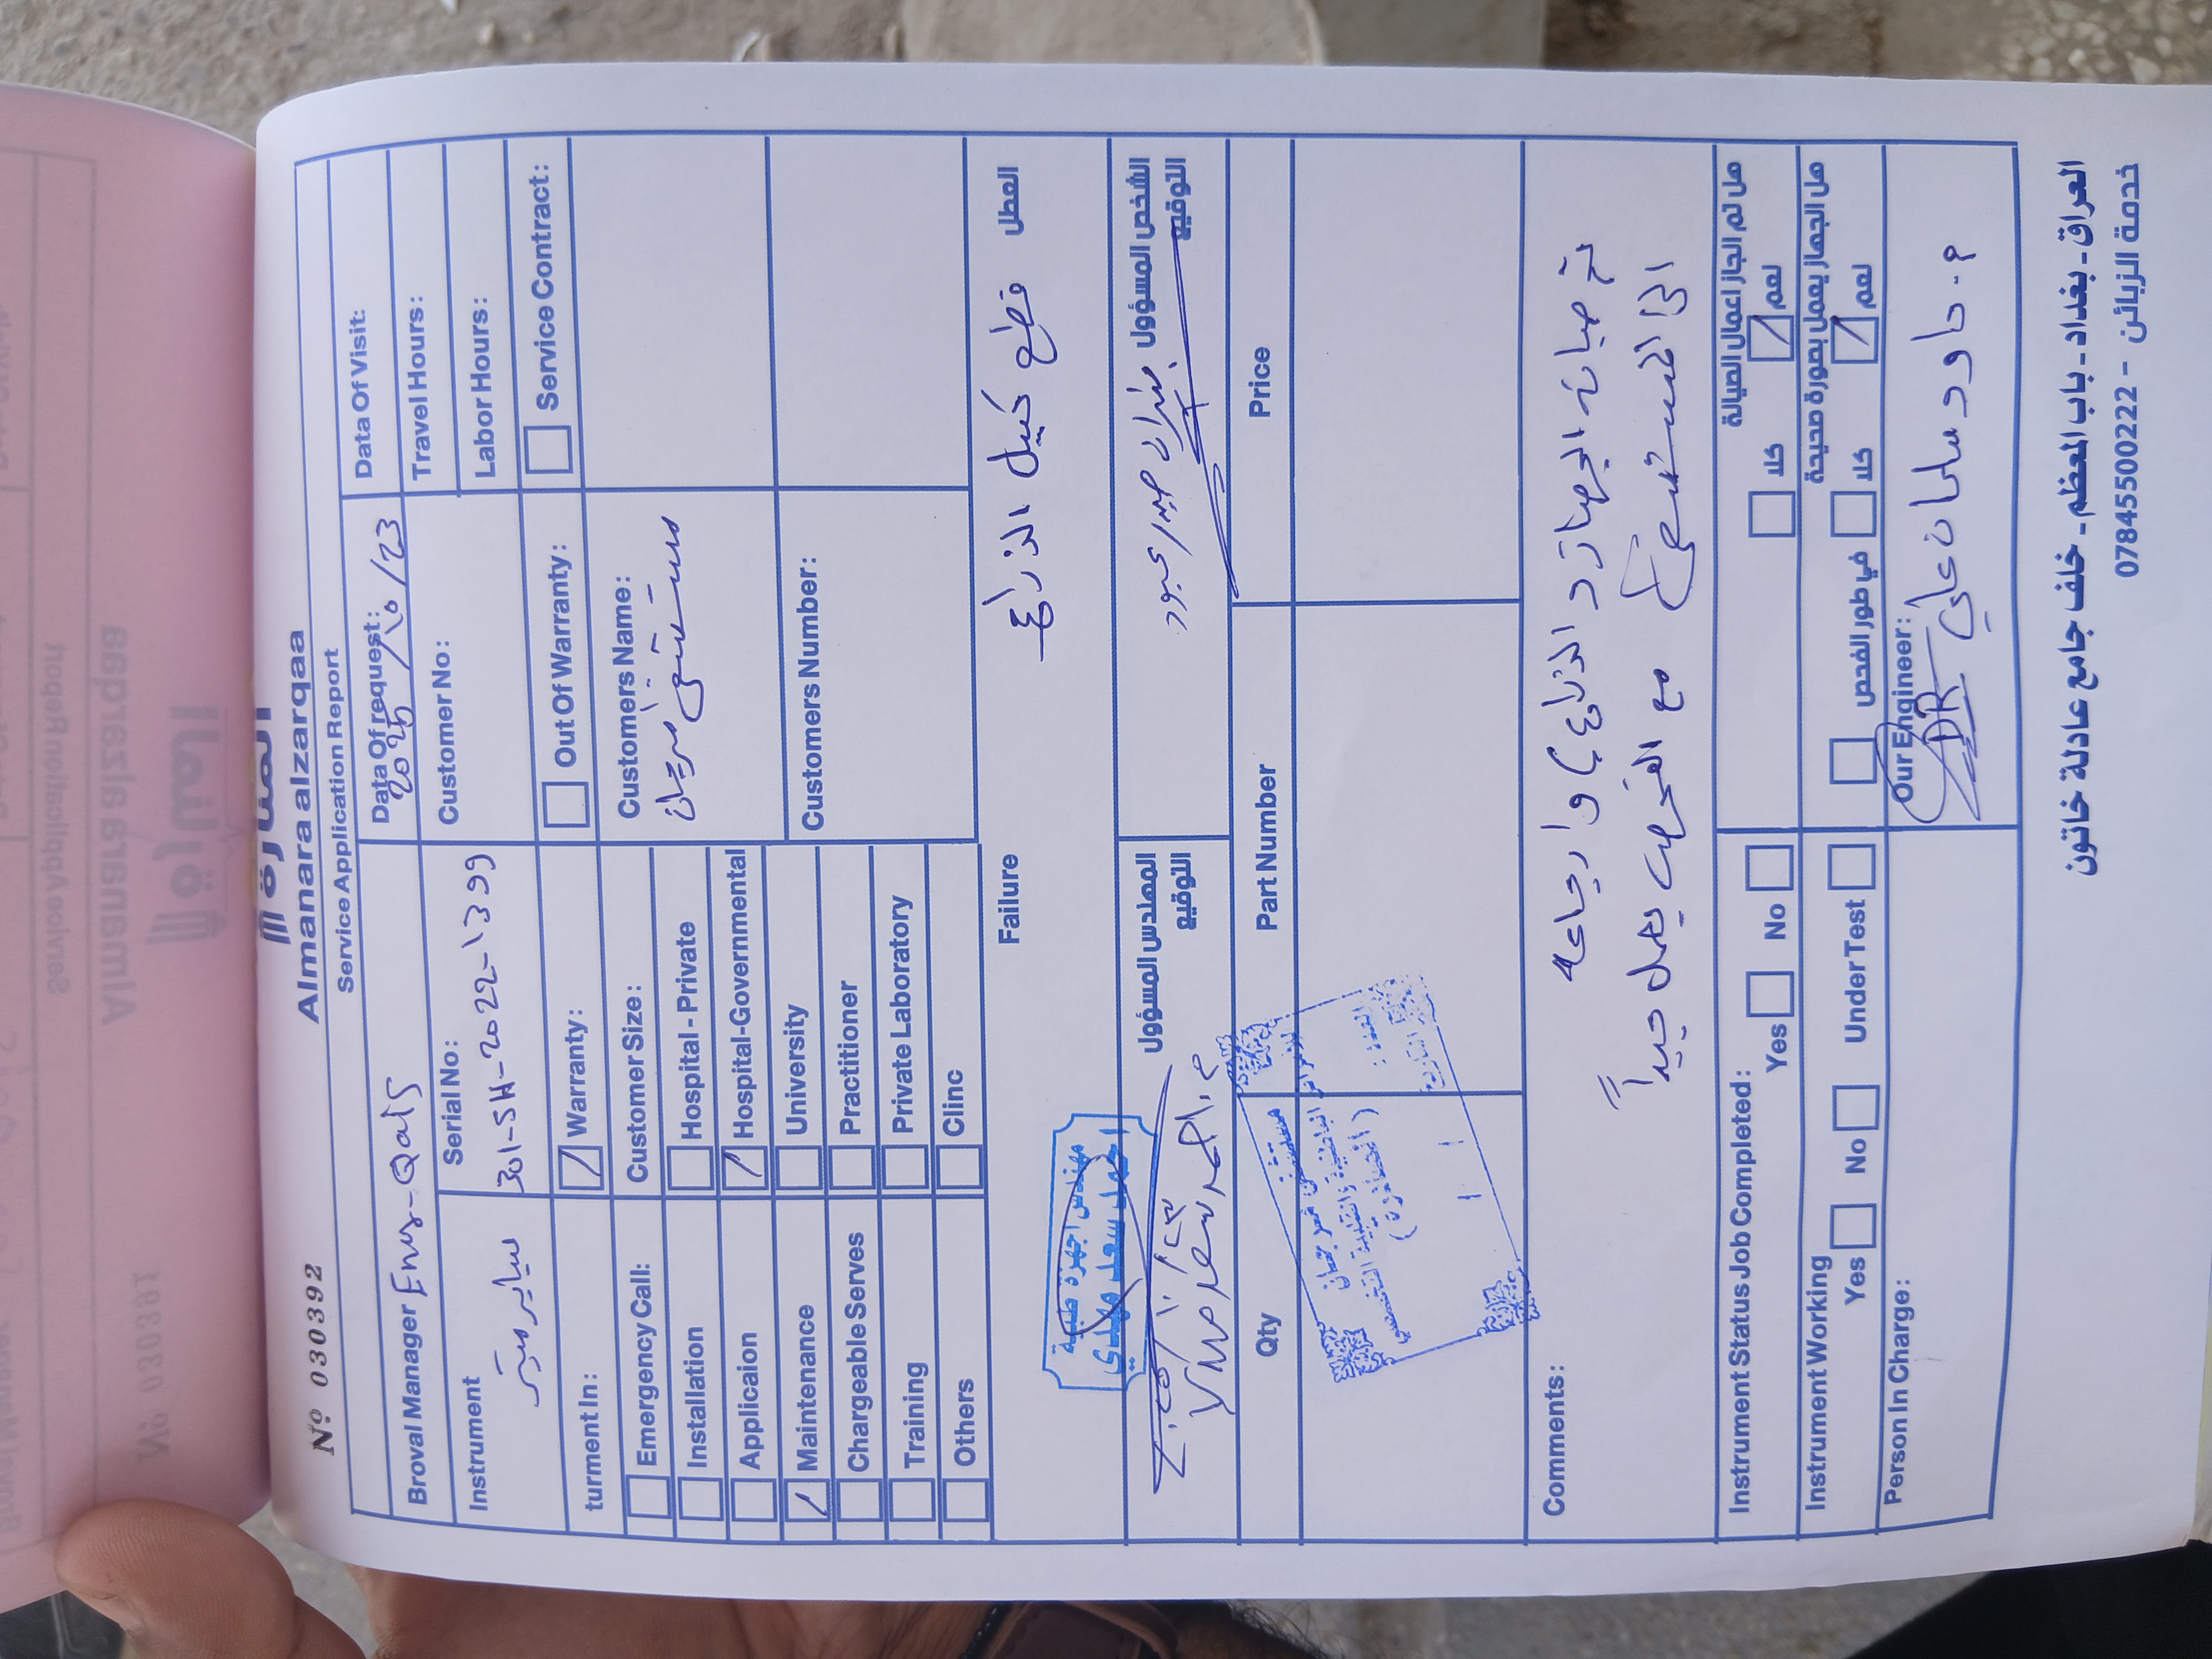 Almanara alzarqaa
Service Application Report
Nº 030392
Broval Manager Eng-Qais
Data Of request: 2025/10/23
Data Of Visit:
Travel Hours:
Instrument سباير ميتر
Serial No: 301-SH-2022-1399
Customer No:
Labor Hours:
turment In:
Warranty:
Out Of Warranty:
Service Contract:
Emergency Call:
Installation
Applicaion
Maintenance
Chargeable Serves
Training
Others
Customer Size:
Hospital - Private
Hospital-Governmental
University
Practitioner
Private Laboratory
Clinc
Customers Name:
مستشفى مرجان
Customers Number:
Failure
العطل قطع كيبل الذراع
مهندس اجهزة طبية
احمد سعد مهدي
المهندس المسؤول
التوقيع
م. احمد سعد مهدي
الشخص المسؤول
التوقيع
حيدر عبود
Qty
Part Number
Price
مستشفى مرجان
الباطنية والقلبية التخصصي
(الصادرة)
العدد:
التاريخ
Comments:
تم صيانة الجهاز د الذراع) وارجاعه
الى المستشفى مع الفحص يعمل جيداً
Instrument Status Job Completed:
Yes
No
هل تم انجاز اعمال الصيانة
كلا
نعم
Instrument Working
Yes
No
Under Test
هل الجهاز يعمل بصورة صحيحة
في طور الفحص
كلا
نعم
Person In Charge:
Our Engineer:
م. داود سلمان علي
العراق - بغداد - باب المعظم - خلف جامع عادلة خاتون
خدمة الزبائن - 07845500222